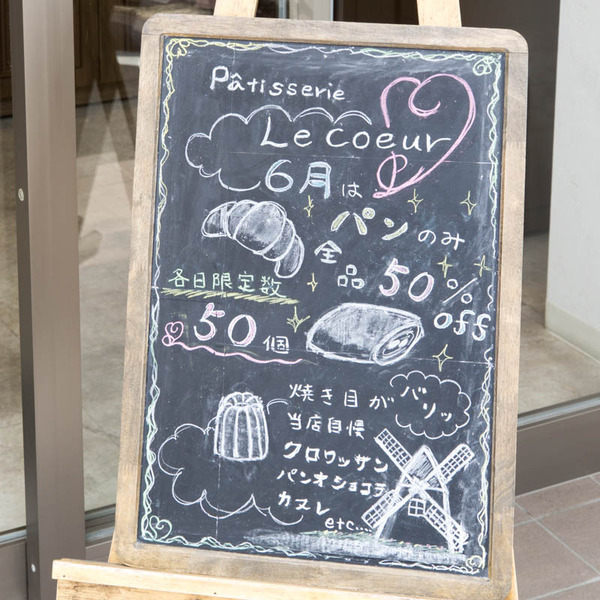 Pâtisserie
Le coeur
6月は
パンのみ
全品 50% off
各日限定数
50個
焼き目が
バリッ
当店自慢
クロワッサン
パンオショコラ
カヌレ
etc....